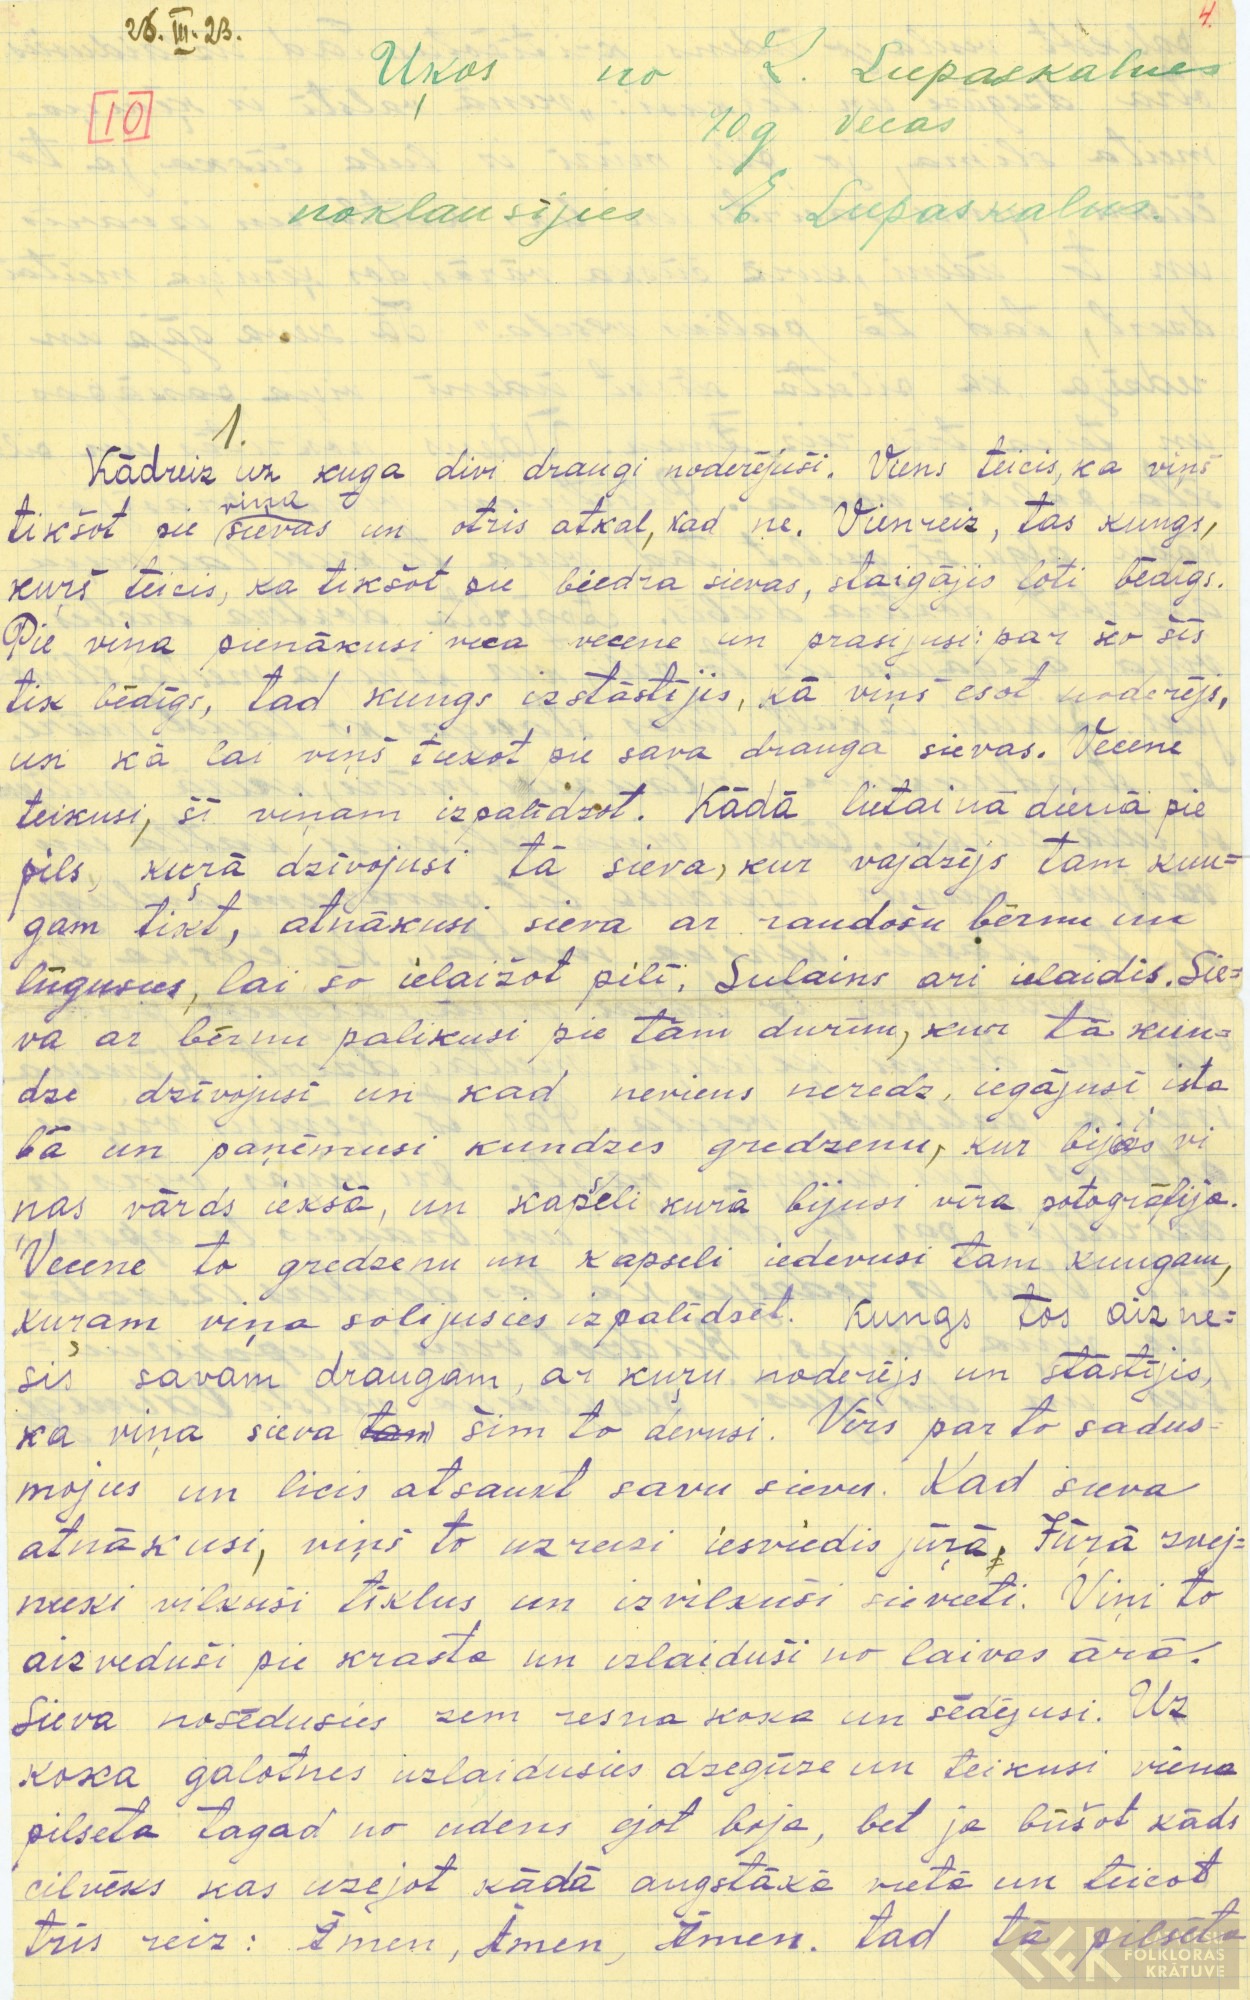 26. III. 23.
4.
Uķos no L. Liepaskalnes
10
70 g vecas
noklausījies E Liepaskalns.
1.
Kādreiz uz kuģa divi draugi noderējuši. Viens teicis, ka viņš
viņa
tikšot pie sievas un otris atkal, kad ne. Vienreiz, tas kungs,
kuŗš teicis, ka tikšot pie biedra sievas, staigājis ļoti bēdīgs.
Pie viņa pienākusi veca vecene un prasijusi: par ko šis
tik bēdīgs, tad kungs izstāstījis, kā viņš esot noderējs,
un kā lai viņš tiekot pie sava drauga sievas. Vecene
teikusi, šī viņam izpalīdzot. Kādā lietainā dienā pie
pils, kuŗā dzīvojusi tā sieva, kur vajdzējs tam kun=
gam tikt, atnākusi sieva ar raudošu bērnu un
lūgusies, lai šo ielaižot pilī. Sulains ari ielaidis. Sie=
va ar bērnu palikusi pie tām durīm, kur tā kun=
dze dzīvojusi un kad neviens neredz, iegājusi ista
bā un paņēmusi kundzes gredzenu, kur bijas vi
ņas vārds iekšā, un kapseli kurā bijusi vīra potogrāfija.
Vecene to gredzenu un kapseli iedevusi tam kungam,
kuŗam viņa solijusies izpalīdzēt. Kungs tos aizne=
sis savam draugam, ar kuŗu noderējs un stāstījis,
ka viņa sieva tam šim to devusi. Vīrs par to sadus=
mojies un licis atsaukt savu sievu. Kad sieva
atnākusi, viņš to uzreizi iesviedis jūŗā. Jūŗā zvej=
nieki vilkuši tīklus un izvilkuši sievieti. Viņi to
aizveduši pie krasta un izlaiduši no laivas ārā.
Sieva nosēdusies zem resna koka un sēdējusi. Uz
koka galotnes uzlaidusies dzegūze un teikusi viena
pilsēta tagad no ūdens ejot boja, bet ja būšot kāds
cilvēks kas uzejot kādā augstākā vietā un teicot
trīs reiz: Āmen, Āmen, Āmen. tad tā pilsēta
FOLKLORAS
KRĀTUVE